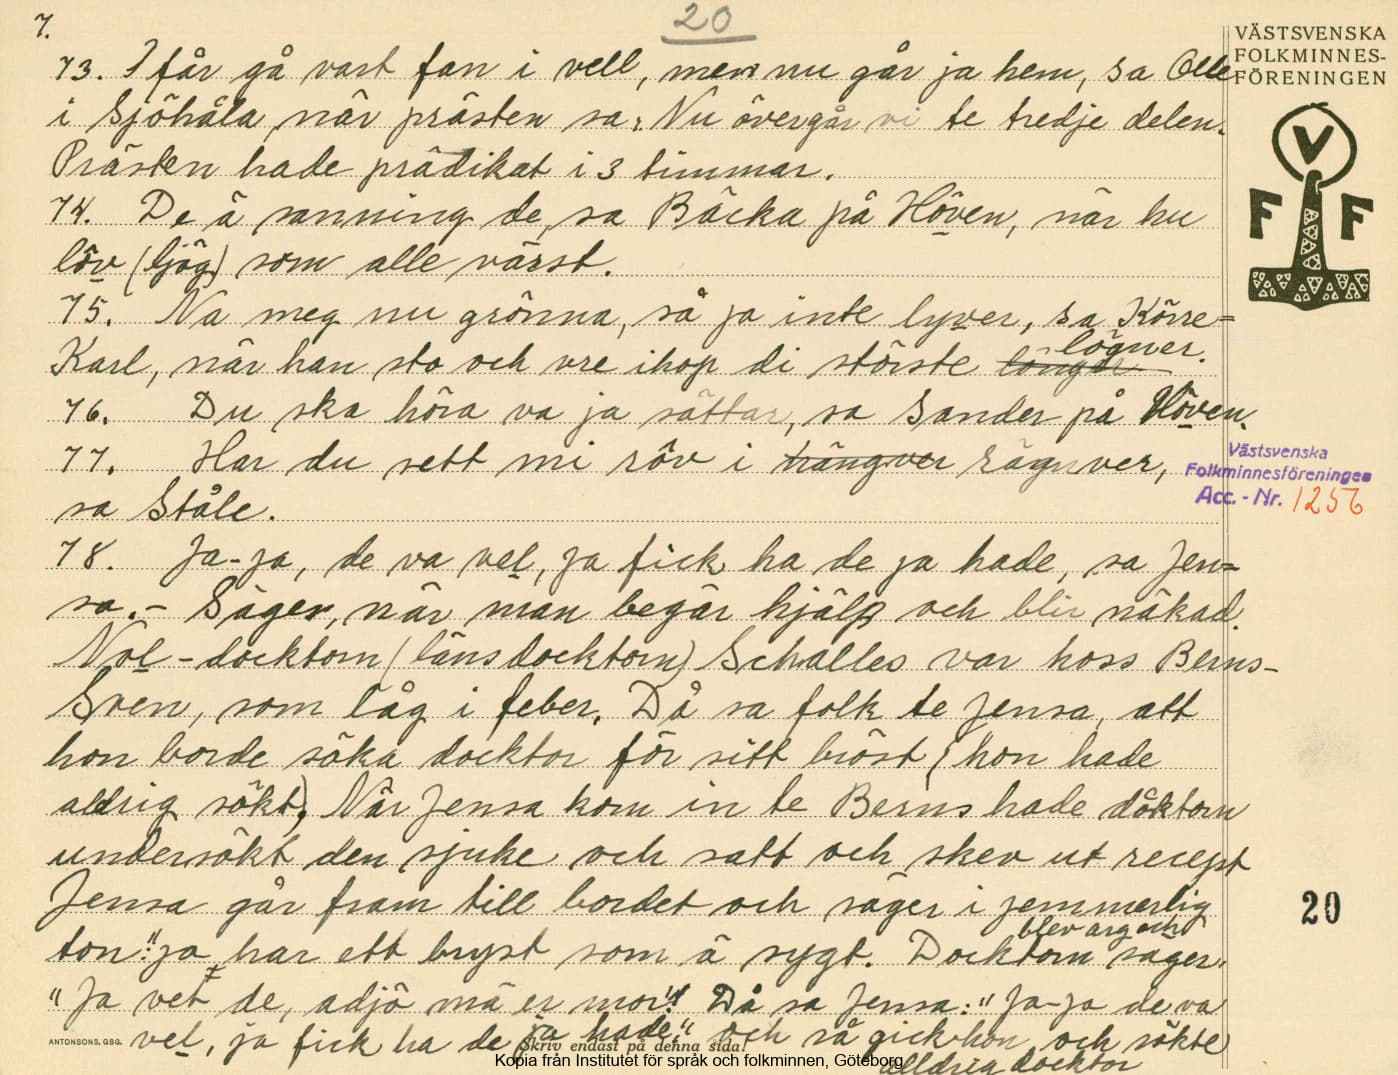 7.
20
VÄSTSVENSKA
FOLKMINNES-
FÖRENINGEN
V
F F
73. I får gå vart fan i vell, men nu går ja hem, sa Olle
i Sjöhåla när prästen sa: Nu övergår vi te tredje delen.
Prästen hade prädikat i 3 timmar.
74. De ä sanning de, sa Bäcka på Höven, när hu
löv (ljög) som alle värst.
75. Na meg nu grönna, så ja inte lyver, sa Körre=
lögner.
Karl, när han sto och vre ihop di störste längder
76. Du ska höra va ja sättar, sa Sander på Höven.
77. Har du sett mi röv i hängver rägnver,
sa Ståle.
Västsvenska
Folkminnesföreningen
Acc. - Nr. 1256
78. Ja-ja, de va vel, ja fick ha de ja hade, sa Jen=
sa. - Säger, när man begär hjälp och blir näkad.
Nol-docktorn (länsdocktorn) Schalles var hoss Berns-
Sven, som låg i feber. Då sa folk te Jensa, att
hon borde söka docktor för sitt bröst (hon hade
aldrig sökt). När Jensa kom in te Berns hade dåktorn
undersökt den sjuke och satt och skev ut recept
Jensa går fram till bordet och säger i jemmerlig
blev arg och
ton: "ja har ett bryst som ä sygt. Docktorn säger.
"Ja vet de, adjö mä er mor"! Då sa Jensa: "Ja-ja de va
vel, ja fick ha de ja hade", och så gick hon och sökte
alldrig docktor
20
ANTONSONS, GBG.
Skriv endast på denna sida!
Kopia från Institutet för språk och folkminnen, Göteborg